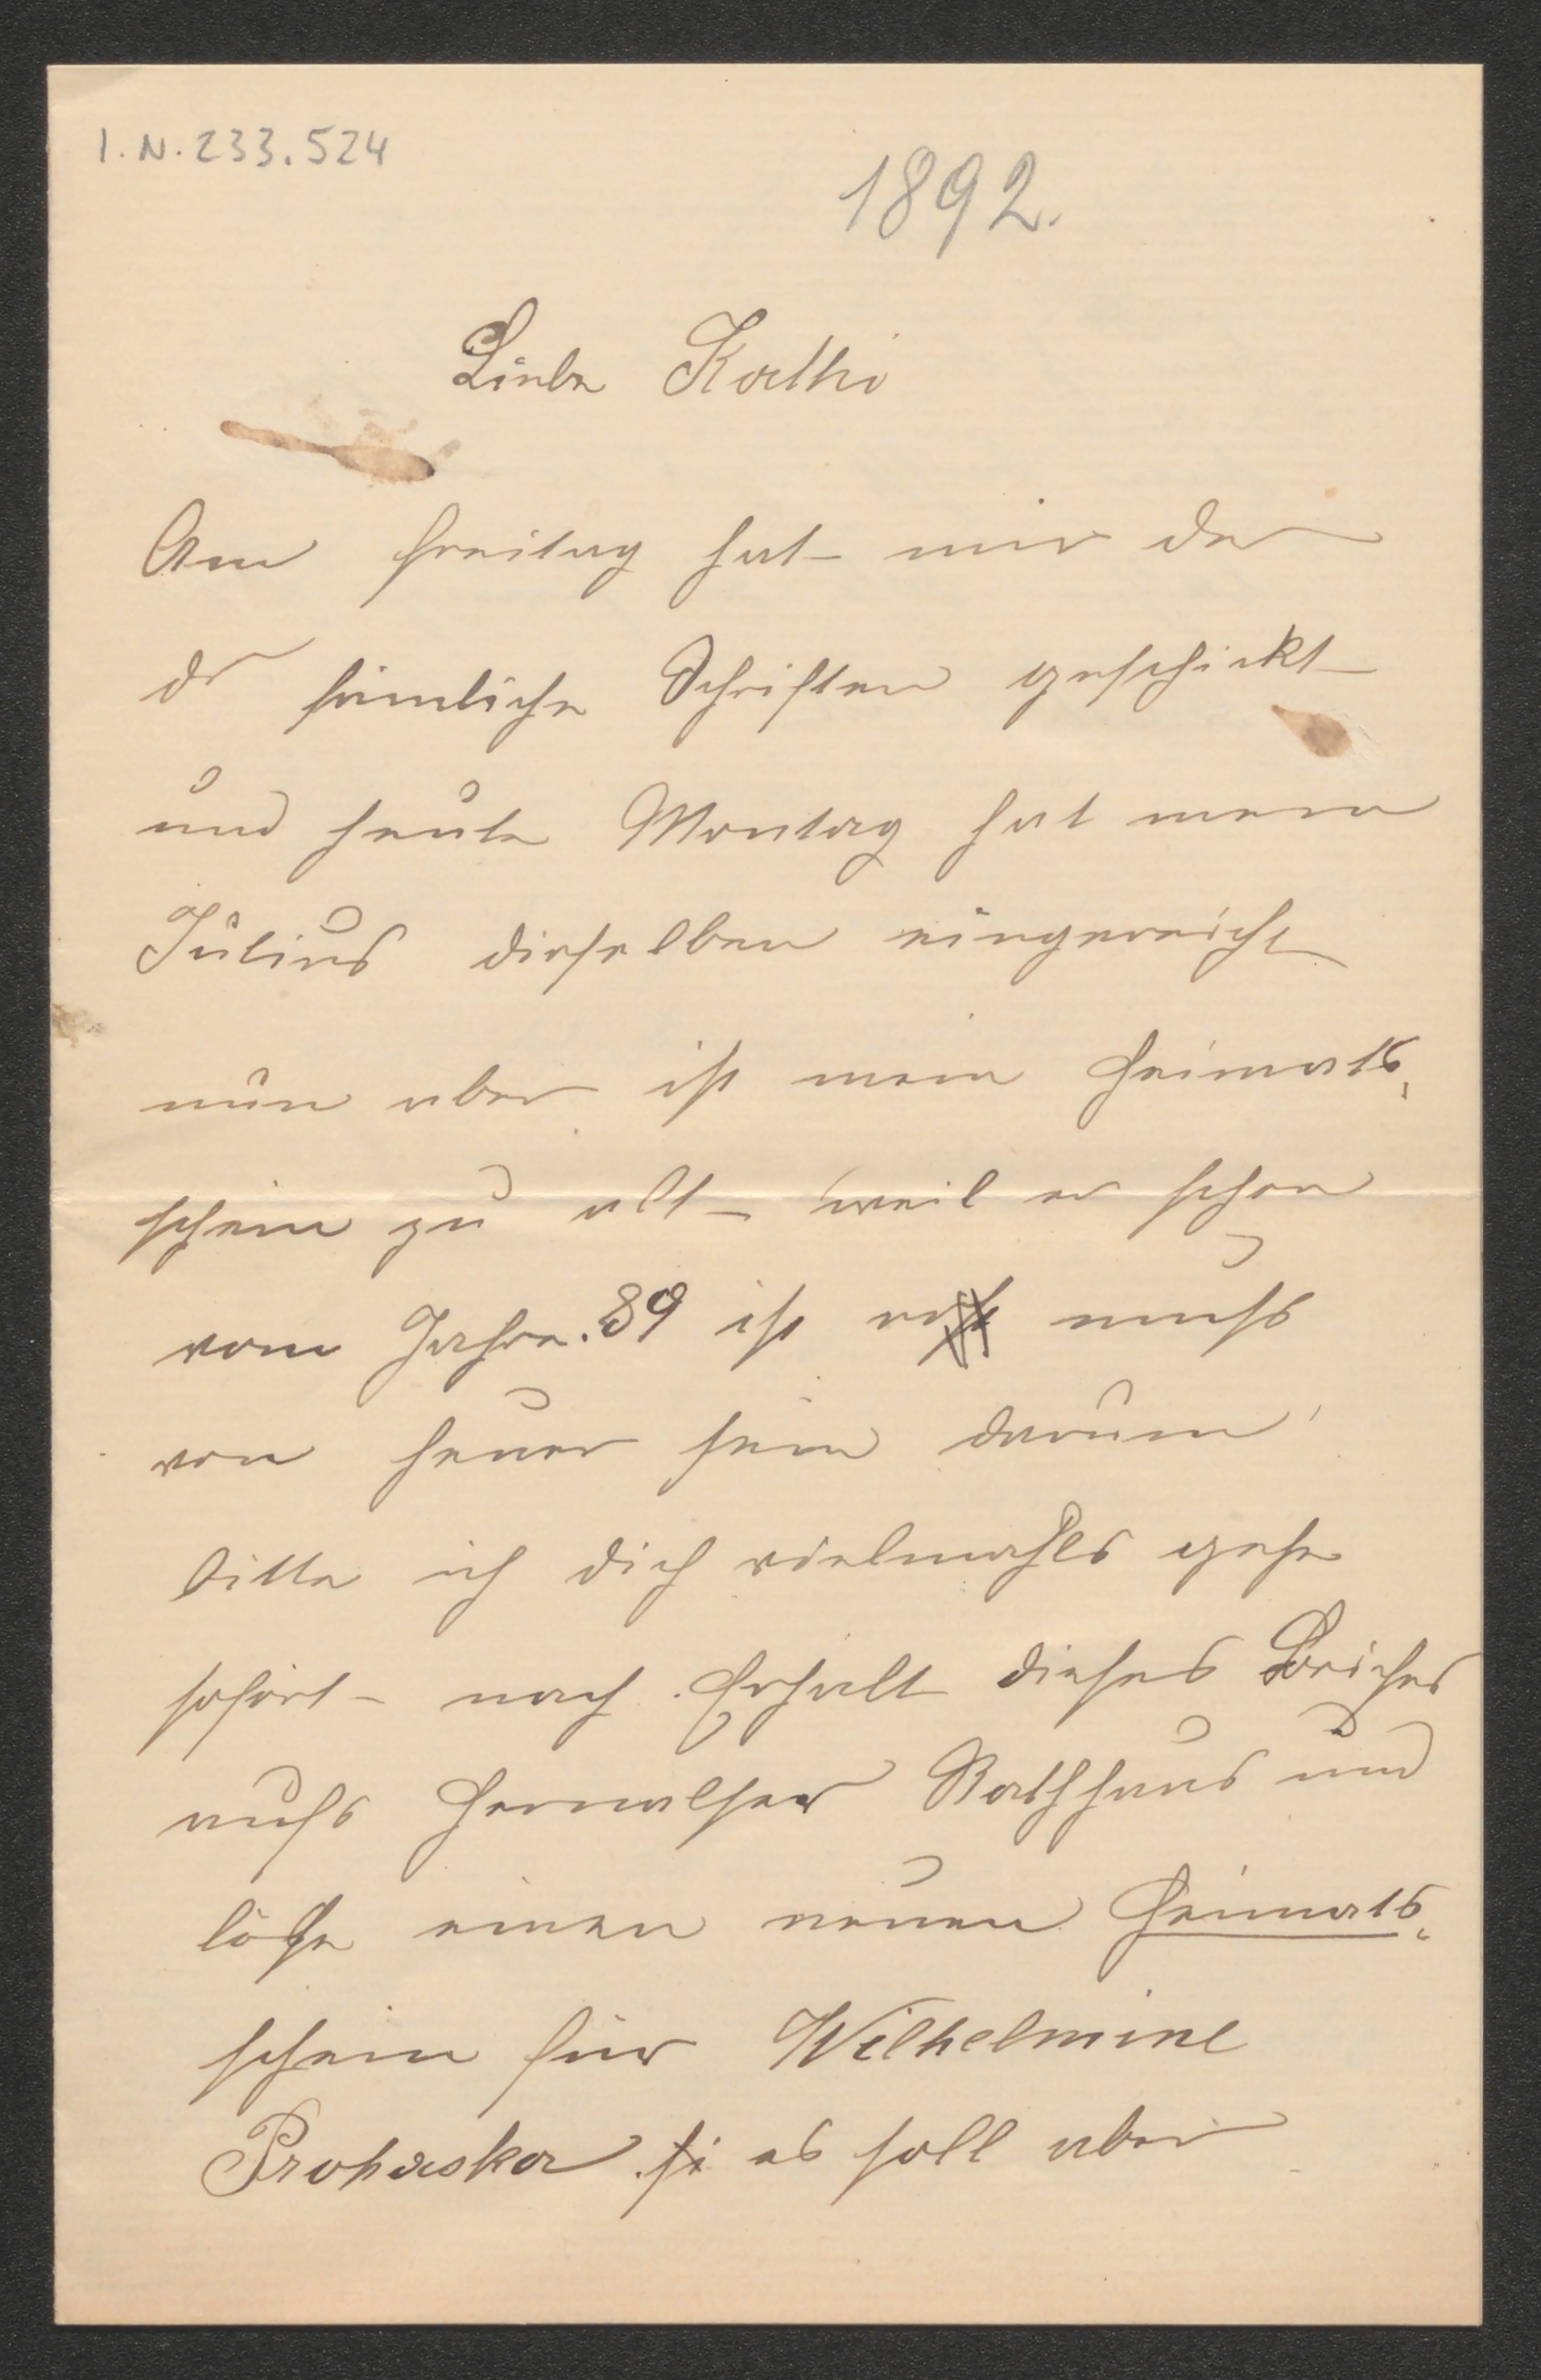 I.N.233.524
1892.
Liebe Kathi
Am Freitag hat mir der
Dr sämliche Schriften geschickt
und heute Montag hat mein
Julius dieselben eingereicht
nun aber ist mein Heimats„
schein zu alt weil er schon
vom Jahre 89 ist muß
von heuer sein darum
bitte ich dich vielmahls gehe
sofort nach Erhalt dieses Briefes
aufs Hernalser Rathhaus und
löse einen neuen Heimats„
schein für Wilhelmine
Prohaska es soll aber